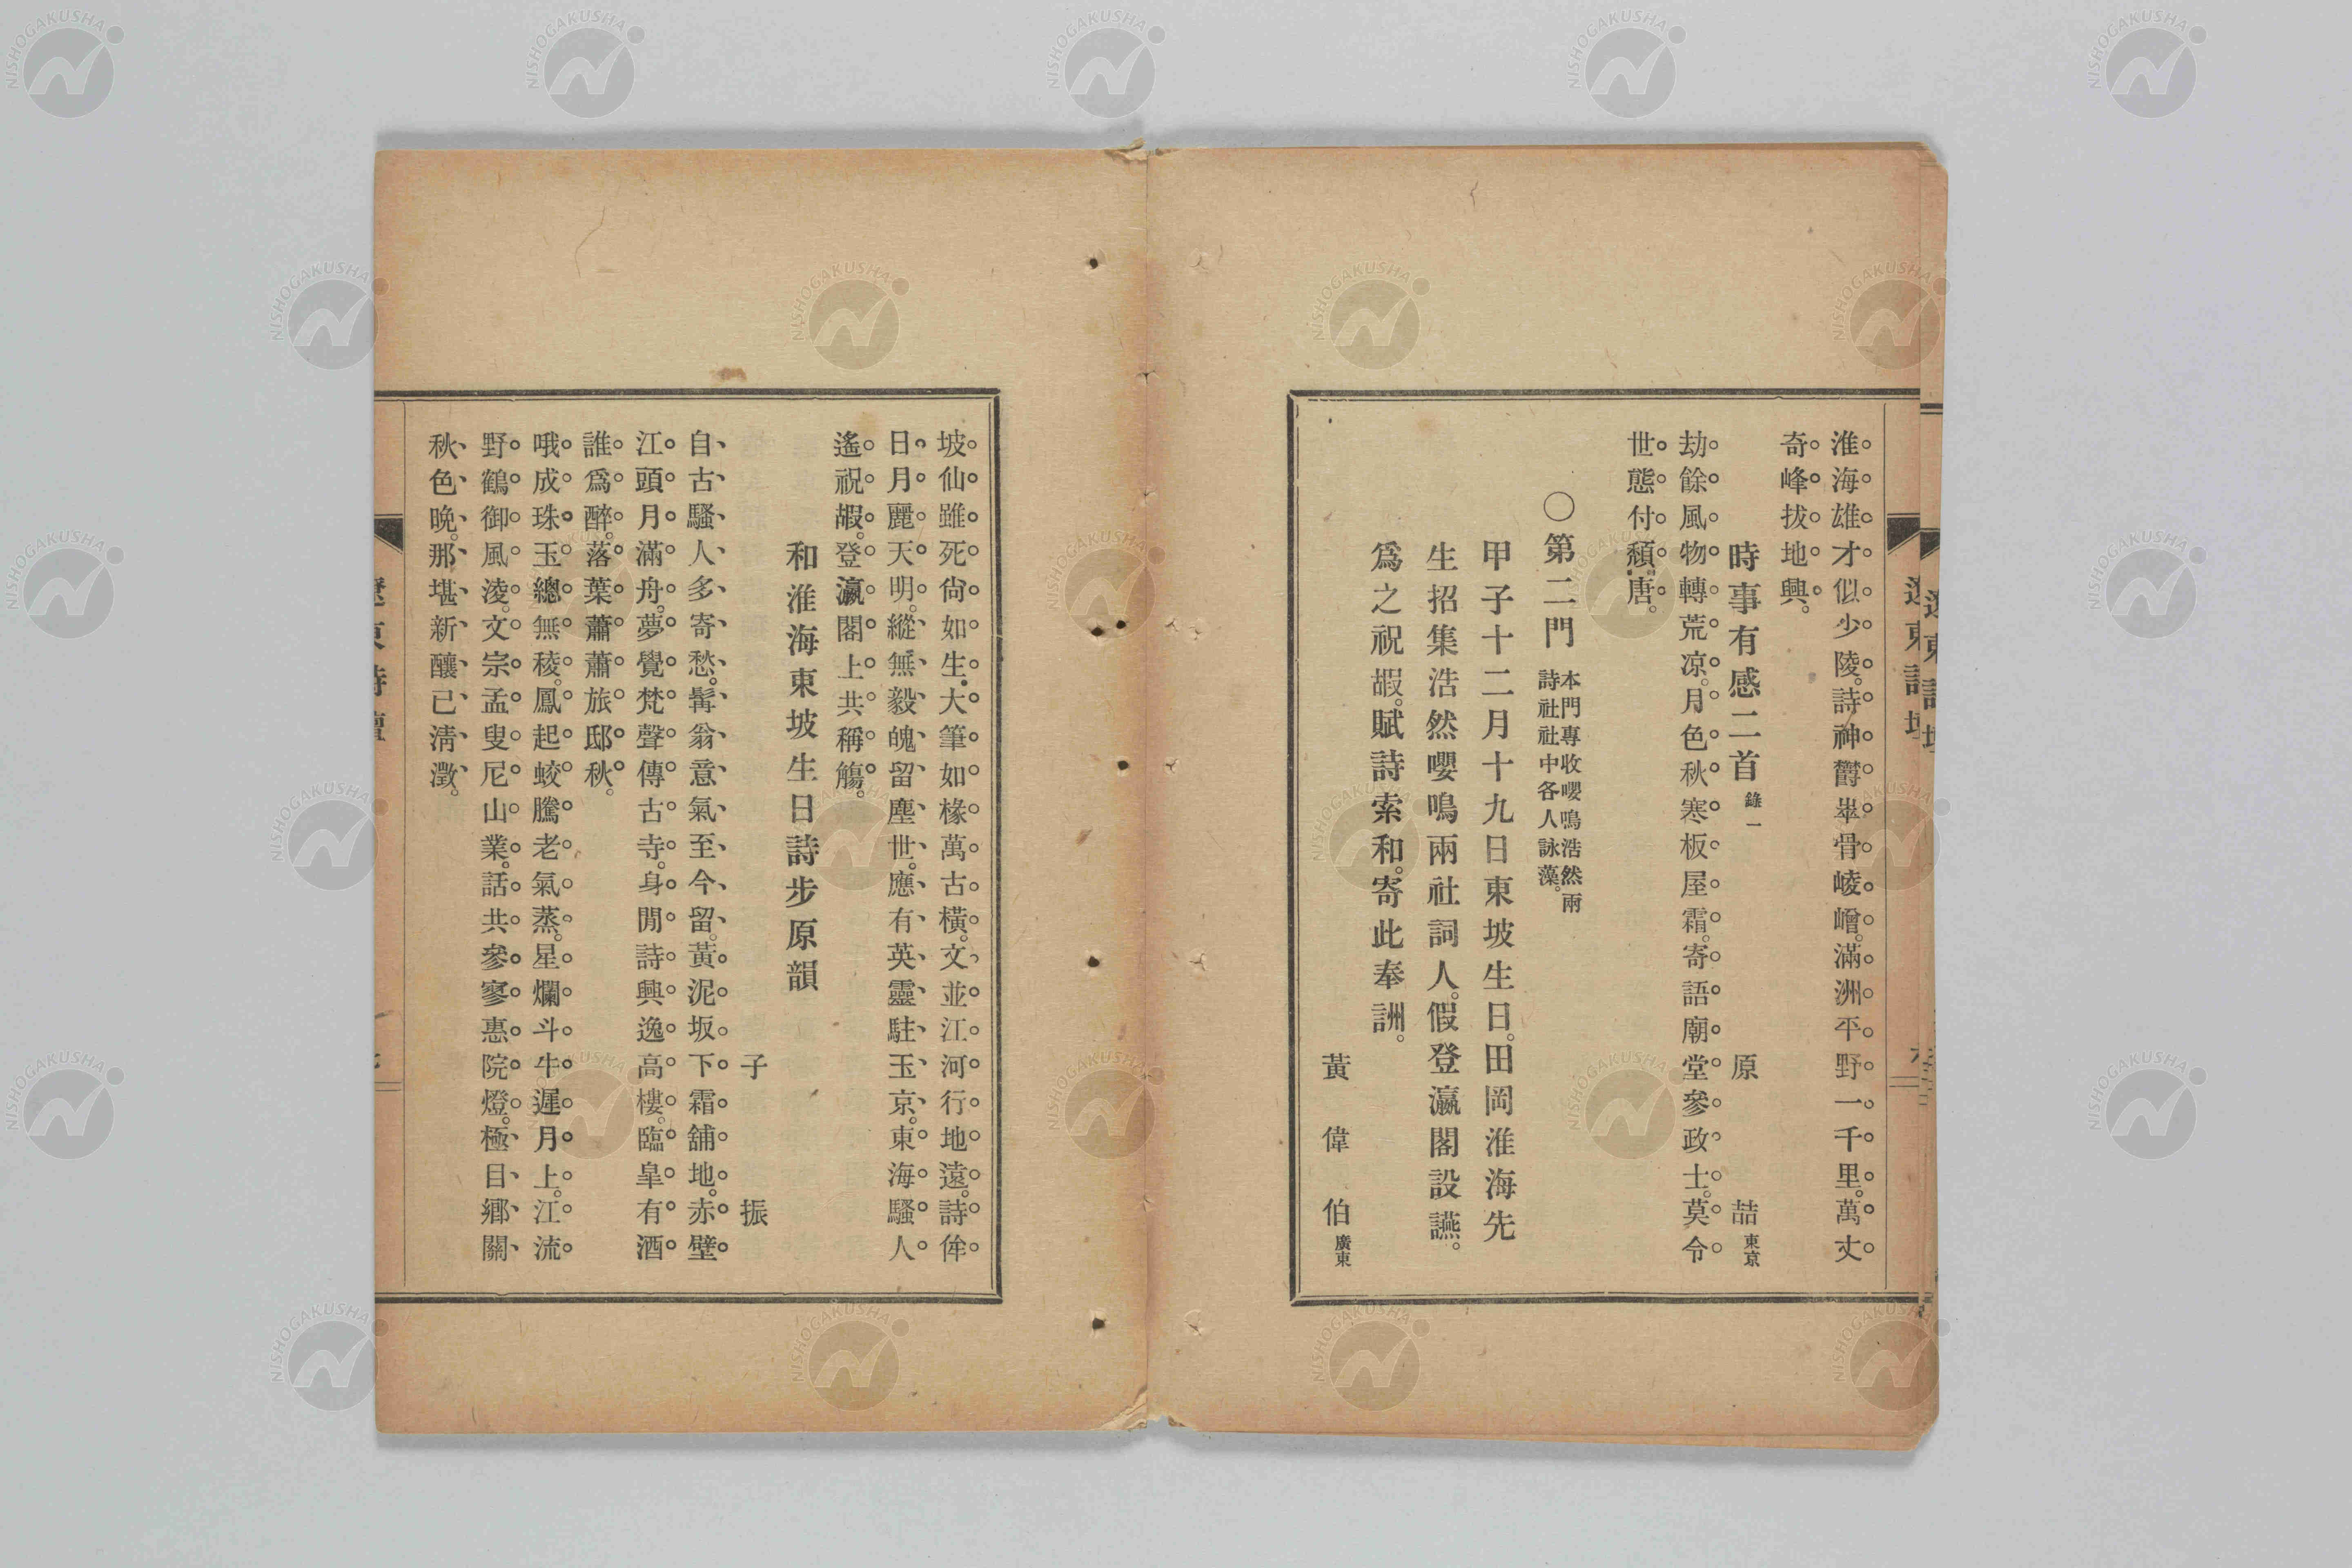 淮海雄才似少陵。詩神欝崒骨崚嶒。滿洲平野一千里。萬丈
奇峰拔地興。
時事有感二首 錄一
原 喆 東京
劫餘風物轉荒凉。月色秋寒板屋霜。寄語廟堂參政士。莫令
世態付頹唐。
〇第二門 本門專收嚶鳴浩然兩
詩社社中各人詠藻。
甲子十二月十九日東坡生日。田岡淮海先
生招集浩然嚶鳴兩社詞人。假登瀛閣設讌。
爲之祝嘏。賦詩索和。寄此奉詶。
黃 偉 伯 廣東
坡仙雖死尙如生。大筆如椽萬古橫。文並江河行地遠。詩侔
日月麗天明。縱無毅魄留塵世。應有英靈駐玉京。東海騷人
遙祝嘏。登瀛閣上共稱觴。
和淮海東坡生日詩步原韻
子 振
自古騷人多寄愁。髯翁意氣至今留。黃泥坂下霜舖地。赤壁
江頭月滿舟。夢覺梵聲傳古寺。身閒詩興逸高樓。臨臯有酒
誰爲醉。落葉蕭蕭旅邸秋。
哦成珠玉總無稜。鳳起蛟騰老氣蒸。星爛斗牛遲月上。江流
野鶴御風淩。文宗孟叟尼山業。話共參寥惠院燈。極目鄉關
秋色晚。那堪新釀已淸澂。